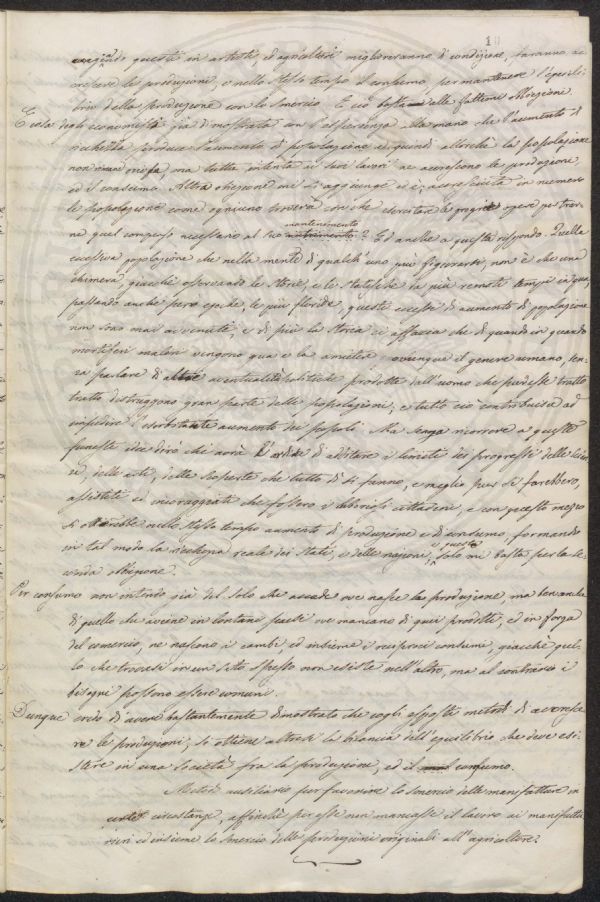 10
questi in artisti, ed agricoltori miglioreranno di condizione, faranno ac
crescere le produzioni, e nello stesso tempo il consumo per mantenere l'equili
brio della produzione con lo smercio. E ciò basta alle fattemi obiezioni.
È cosa degli economisti già dimostrata con l'esperienza che mano che l'aumento di
ricchezza produce l'aumento di popolazione e quindi allorchè la popolazione
non misera, ma tutta intenta ai suoi lavori ne accrescono le produzioni,
ed il consumo. Altra obiezione mi si aggiunge ed è; accresciuta in numero
la popolazione come ogniuno troverà con che esercitare le proprie opere per trovar
ne quel compenso necessario al suo mantenimento? Ed anche a questa rispondo. Quella
eccessiva popolazione che nella mente di qualch'uno può figgurarsi, non è che una
chimera, giacchè osservando le storie, e le statistiche da più remoti tempi in qua,
passando anche però epoche, le più floride, questi eccessi di aumento di popolazione
non sono mai avvenuti, e di più la storia ci affaccia che di quando in quando
mortiferi malori vengono qua e la ovunque il genere umano, sen
za parlare di altre eventualità politiche prodotte dall'uomo che pur esse tratto
tratto distruggono gran parte delle popolazioni, e tutto ciò contribuisce ad
impedire l'esorbitante aumento dei popoli. Ma senza ricorrere a queste
funeste idee dirò chi avrà l'ardire di additare i limiti dei progressi delle scien
ze, delle arti, delle scoperte che tutto di si fanno, e meglio pur si farebbero,
assistiti ed incoraggiati che fossero i laboriosi cittadini, e con questo mezzo
si otterrebbe nello stesso tempo aumento di produzione e di consumo, formando
in tal modo la ricchezza reale dei Stati, e delle nazioni, e questo solo mi basta per la se
conda obiezione.
Per consumo non intendo già del solo che accade ove nasce la produzione, ma ben anche
di quello che avviene in lontani paesi ove mancano di quei prodotti, ed in forza
del comercio, ne nascono i cambi ed insieme i reciproci consumi, giacchè quel
lo che trovasi in un sito spesso non esiste nell'altro, ma al contrario i
bisogni possono essere comuni.
Dunque credo di avere bastantemente dimostrato che cogli esposti metodi di accresce
re le produzioni, si ottiene altresì la bilancia dell'equilibrio che deve esi
stere in una società fra la produzione, ed il consumo.
Metodo ausiliario per favorire lo smercio delle manifatture in
certe circostanze, affinchè per esse non mancasse il lavoro ai manifattu
rieri ed insieme lo smercio delle produzioni originali all'agricoltore.